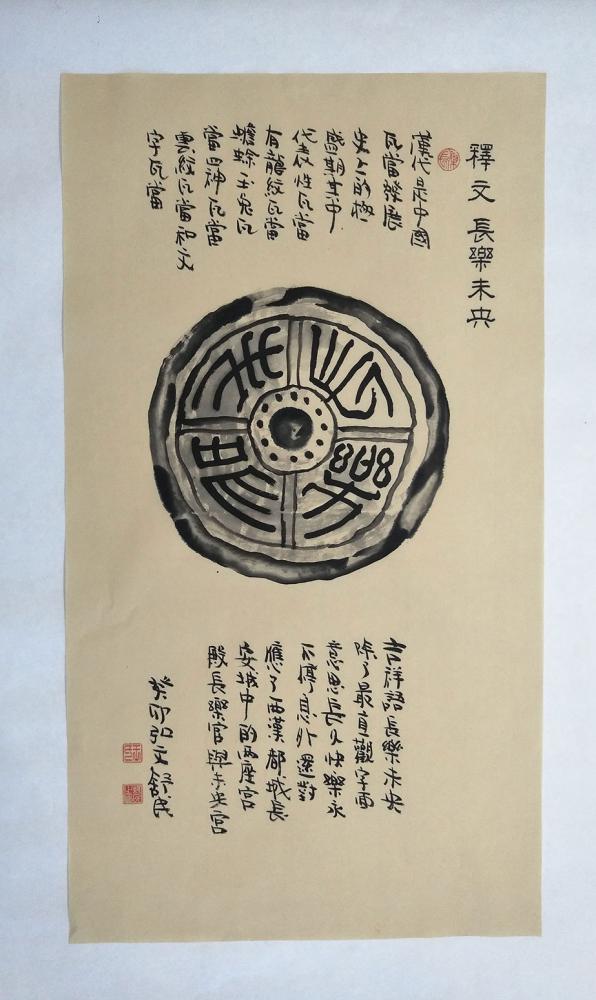 釋文 長樂未央
漢代是中國
瓦當發展
史上的極
盛期其中
代表性瓦當
有龍紋瓦當
蟾蜍玉兔瓦
當四神瓦當
雲紋瓦當及文
字瓦當
長樂
未央
吉祥語長樂未央
除了最直觀字面
意思長久快樂永
不停息外還對
應了西漢都城長
安城中的兩座宮
殿長樂宮與未央宮
癸卯弘文